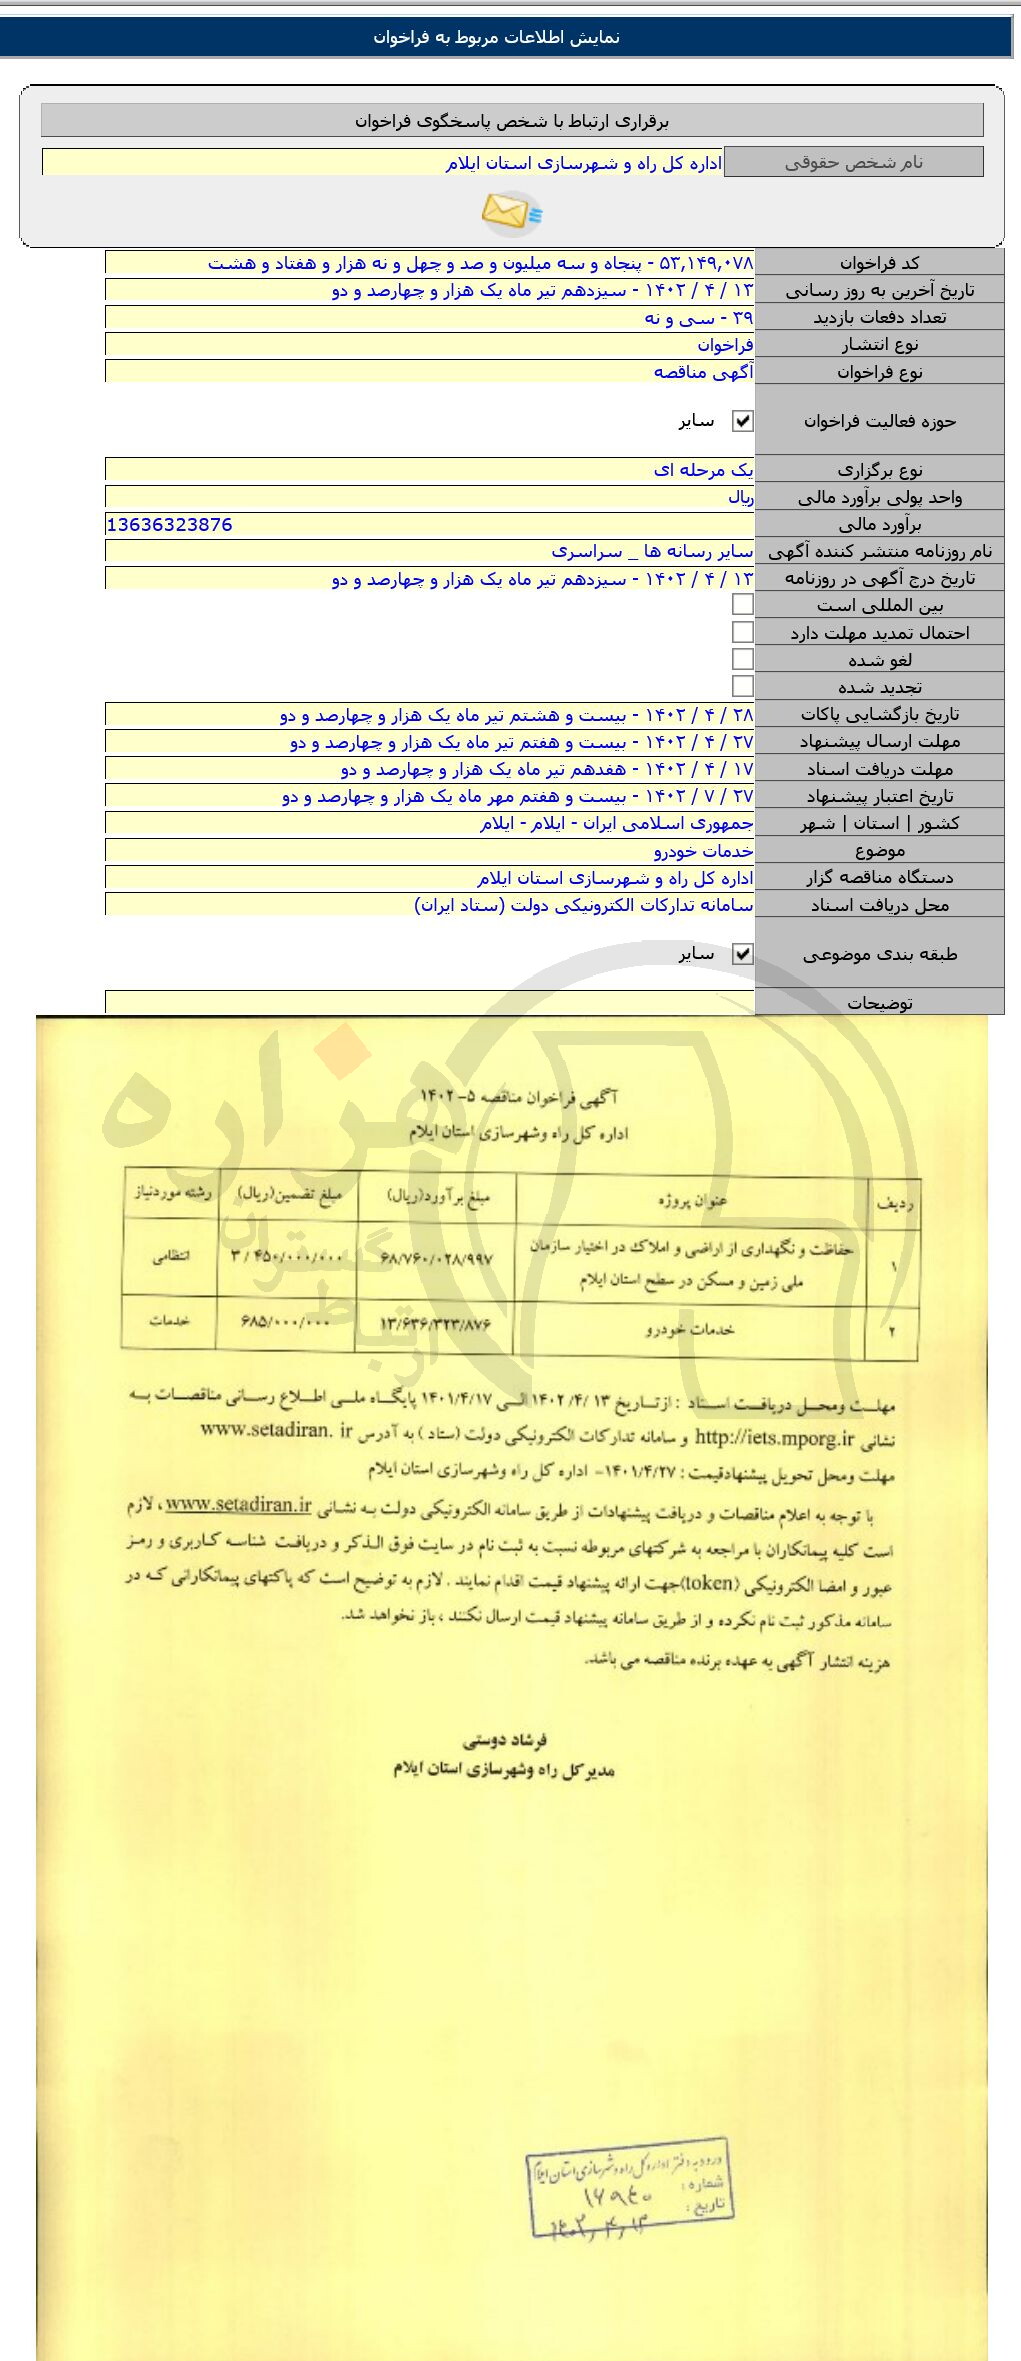 نمایش اطلاعات مربوط به فراخوان
برقراری ارتباط با شخص پاسخگوی فراخوان
نام شخص حقوقی اداره کل راه و شهرسازی استان ایلام
کد فراخوان ۵۳,۱۴۹,۰۷۸ - پنجاه و سه میلیون و صد و چهل و نه هزار و هفتاد و هشت
تاریخ آخرین به روز رسانی ۱۳ / ۴ / ۱۴۰۲ - سیزدهم تیر ماه یک هزار و چهارصد و دو
تعداد دفعات بازدید ۳۹ - سی و نه
نوع انتشار فراخوان
نوع فراخوان آگهی مناقصه
حوزه فعالیت فراخوان سایر
نوع برگزاری یک مرحله ای
واحد پولی برآورد مالی ریال
برآورد مالی 13636323876
نام روزنامه منتشر کننده آگهی سایر رسانه ها _ سراسری
تاریخ درج آگهی در روزنامه ۱۳ / ۴ / ۱۴۰۲ - سیزدهم تیر ماه یک هزار و چهارصد و دو
بین المللی است
احتمال تمدید مهلت دارد
لغو شده
تجدید شده
تاریخ بازگشایی پاکات ۲۸ / ۴ / ۱۴۰۲ - بیست و هشتم تیر ماه یک هزار و چهارصد و دو
مهلت ارسال پیشنهاد ۲۷ / ۴ / ۱۴۰۲ - بیست و هفتم تیر ماه یک هزار و چهارصد و دو
مهلت دریافت اسناد ۱۷ / ۴ / ۱۴۰۲ - هفدهم تیر ماه یک هزار و چهارصد و دو
تاریخ اعتبار پیشنهاد ۲۷ / ۷ / ۱۴۰۲ - بیست و هفتم مهر ماه یک هزار و چهارصد و دو
کشور | استان | شهر جمهوری اسلامی ایران - ایلام - ایلام
موضوع خدمات خودرو
دستگاه مناقصه گزار اداره کل راه و شهرسازی استان ایلام
محل دریافت اسناد سامانه تدارکات الکترونیکی دولت (ستاد ایران)
طبقه بندی موضوعی سایر
توضیحات
هزاره
آگهی فراخوان مناقصه ۵- ۱۴۰۲
اداره کل راه وشهرسازی استان ایلام
ردیف عنوان پروژه مبلغ برآورد(ریال) مبلغ تضمین(ریال) رشته موردنیاز
۱ حفاظت و نگهداری از اراضی و املاک در اختیار سازمان ملی زمین و مسکن در سطح استان ایلام ۶۸/۷۶۰/۰۲۸/۹۹۷ ۳/۴۵۰/۰۰۰/۰۰۰ انتظامی
۲ خدمات خودرو ۱۳/۶۳۶/۳۲۳/۸۷۶ ۶۸۵/۰۰۰/۰۰۰ خدمات
مهلت ومحل دریافت اسناد : ازتاریخ ۱۳ /۴/ ۱۴۰۲ الی ۱۴۰۱/۴/۱۷ پایگاه ملی اطلاع رسانی مناقصات به
نشانی http://iets.mporg.ir و سامانه تدارکات الکترونیکی دولت (ستاد ) به آدرس www.setadiran. ir
مهلت ومحل تحویل پیشنهادقیمت : ۱۴۰۱/۴/۲۷- اداره کل راه وشهرسازی استان ایلام
با توجه به اعلام مناقصات و دریافت پیشنهادات از طریق سامانه الکترونیکی دولت به نشانی www.setadiran.ir ، لازم
است کلیه پیمانکاران با مراجعه به شرکتهای مربوطه نسبت به ثبت نام در سایت فوق الذکر و دریافت شناسه کاربری و رمز
عبور و امضا الکترونیکی (token)جهت ارائه پیشنهاد قیمت اقدام نمایند . لازم به توضیح است که پاکتهای پیمانکارانی که در
سامانه مذکور ثبت نام نکرده و از طریق سامانه پیشنهاد قیمت ارسال نکنند ، باز نخواهد شد.
هزینه انتشار آگهی به عهده برنده مناقصه می باشد.
فرشاد دوستی
مدیرکل راه وشهرسازی استان ایلام
ورود به دفتر اداره کل راه و شهرسازی استان ایلام
شماره : ۱۷۹۴۰
تاریخ : ۱۴۰۲,۴,۱۳